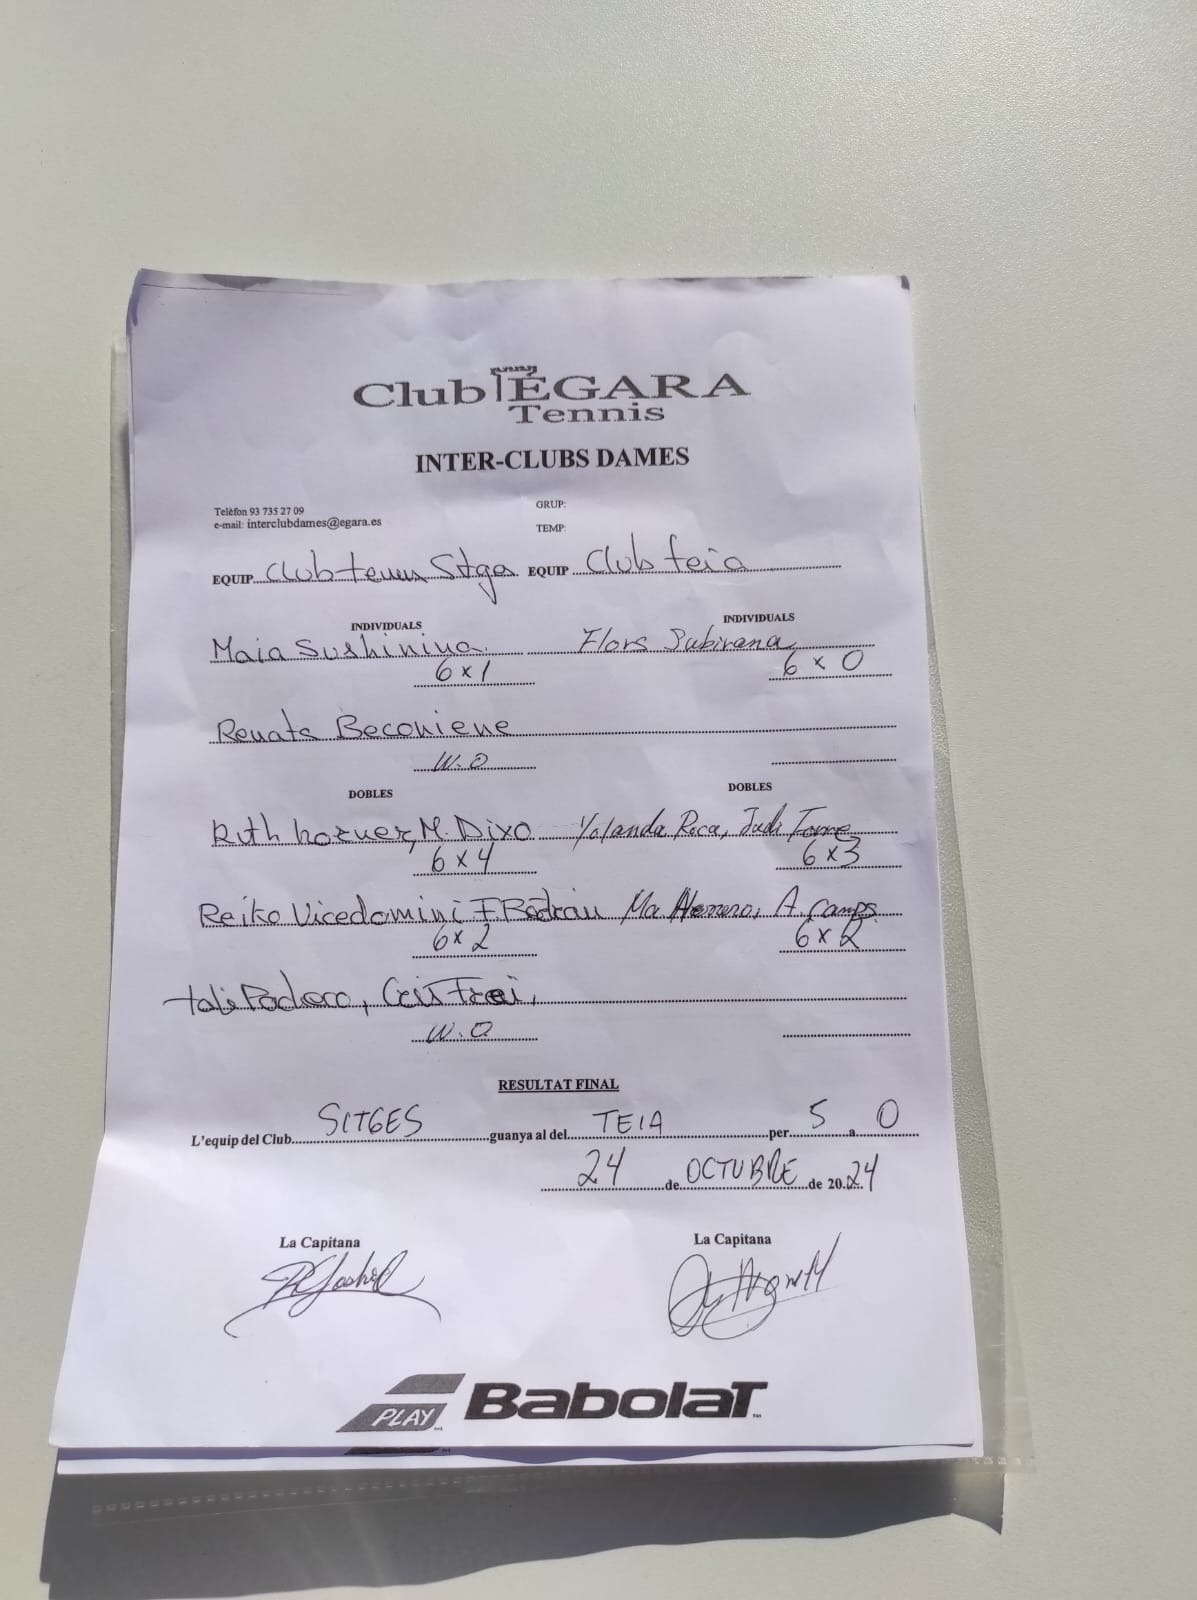 Club EGARA
Tennis
INTER-CLUBS DAMES
Telèfon 93 735 27 09
e-mail: interclubdames@egara.es
GRUP:
TEMP:
EQUIP Club tennis Stges EQUIP Club teia
INDIVIDUALS INDIVIDUALS
Maia Sushinina Flors Subirana
6x1 6x0
Renata Beconiene
W.O
DOBLES DOBLES
Ruth M. Dixo Yolanda Roca, Judi Torne
6x4 6x3
Reiko Vicedomini Ma Herrero, A. Camps
6x2 6x2
Cris
W.O
RESULTAT FINAL
L'equip del Club SITGES guanya al del TEIA per 5 a 0
24 de OCTUBRE de 20.24
La Capitana La Capitana
PLAY BABOLAT